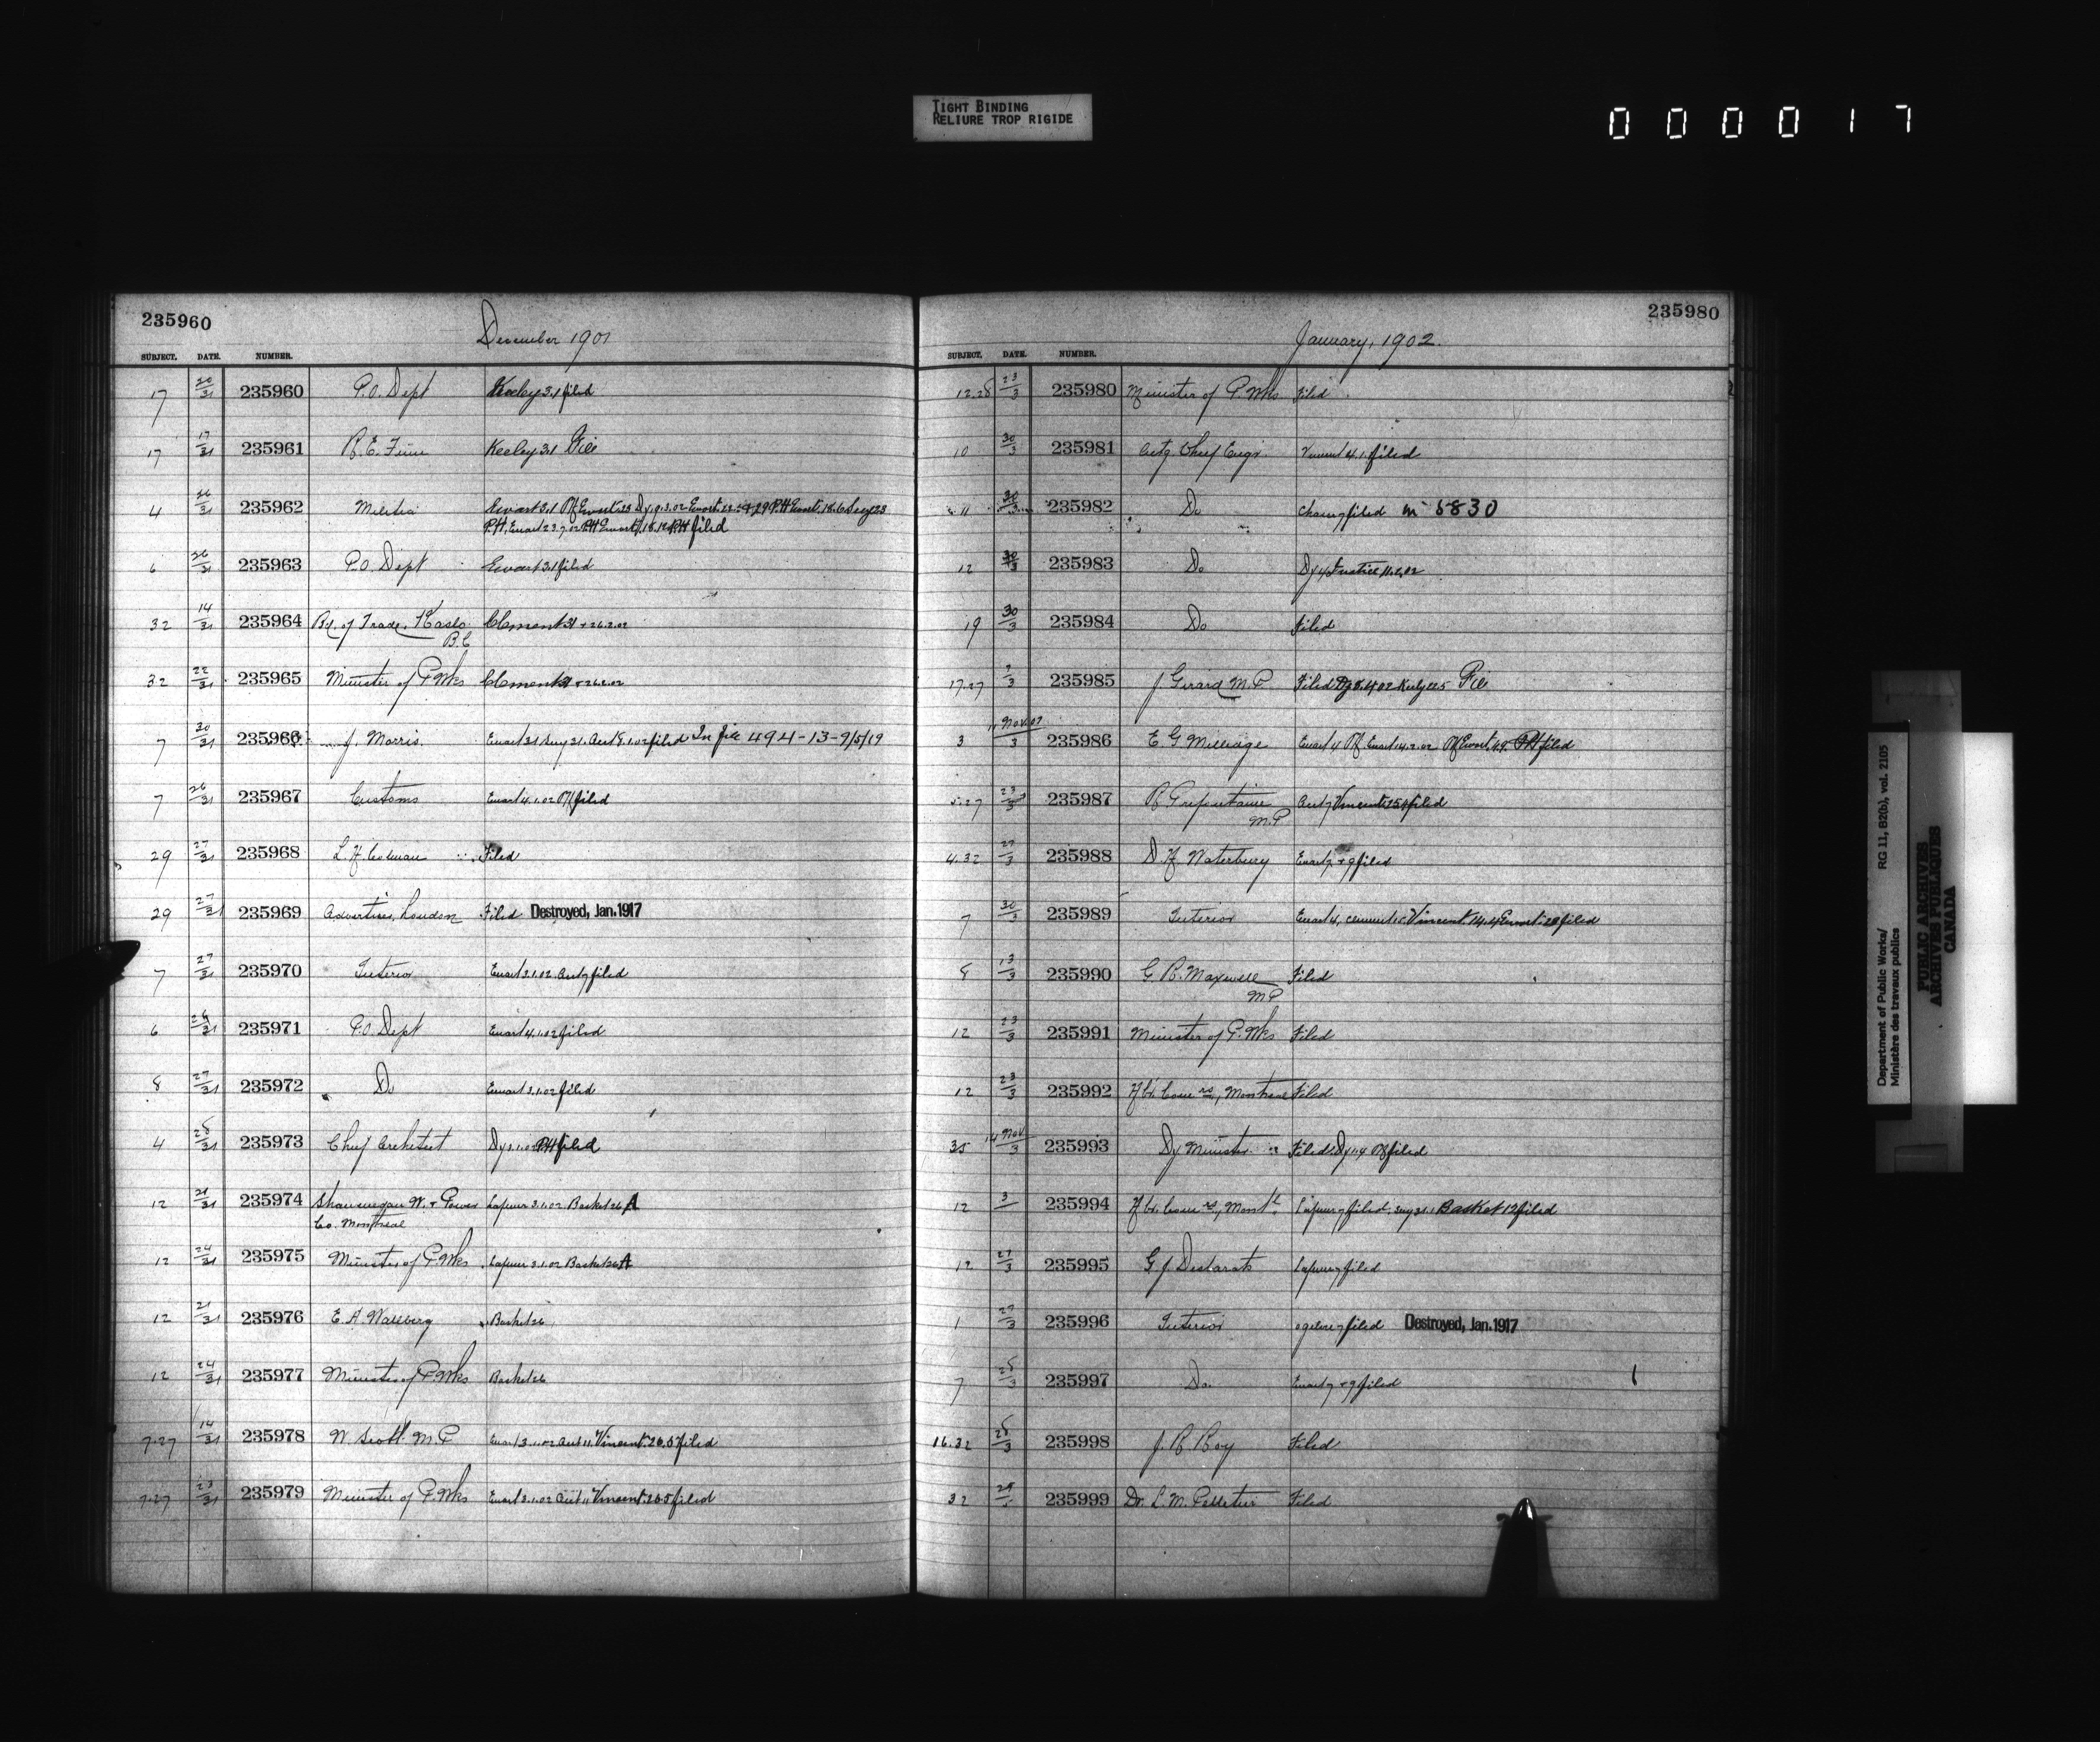 TIGHT BINDING
RELIURE TROP RIGIDE
0 0 0 0 1 7
235960
December 1901
SUBJECT. DATE. NUMBER.
17 20/31 235960 P.O. Dept Keeley 3.1 filed
17 17/31 235961 R.E. Keeley 3.1 File
4 26/31 235962 Militia Ewart 3.1
filed
6 26/31 235963 P.O. Dept Ewart 3.1 filed
32 14/31 235964 Bd. of Trade, Kaslo Clement 31 + 26.2.02
B.C
32 22/31 235965 Minister of P. Wks Clement + 26.2.02
7 30/31 235966 J. Morris Ewart 31 filed In file 494-13-9/5/19
7 26/31 235967 Customs Ewart 4.1.02 filed
29 27/31 235968 L. H. Colman Filed
29 27/31 235969 Advertiser, London Filed Destroyed, Jan. 1917
7 27/31 235970 Interior Ewart 3.1.02 filed
6 26/31 235971 P.O. Dept Ewart 4.1.02 filed
8 27/31 235972 Do Ewart 3.1.02 filed
4 28/31 235973 Chief Architect Dy 3.1.02 PH filed
12 21/31 235974 Shawinegan W. + Power Lafleur 3.1.02 Basket 26 A
Co. Montreal
12 24/31 235975 Minister of P. Wks Lafleur 3.1.02 Basket 26 A
12 21/31 235976 E. A. Wallberg Basket 26
12 24/31 235977 Minister of P. Wks Basket 26
7.27 14/31 235978 W. Scott M.P Ewart 3.1.02 Vincent 20.5 filed
7.27 23/31 235979 Minister of P. Wks Ewart 3.1.02 Vincent 20.5 filed
235980
January, 1902.
SUBJECT. DATE. NUMBER.
12.28 23/3 235980 Minister of P. Wks Filed
10 30/3 235981 Actg Chief Engr Vincent 4.1. filed
11 30/3 235982 Do filed 5830
12 30/3 235983 Do Dy 4 Justice 11.2.02
19 30/3 235984 Do Filed
17.27 235985 J. Girard M.P Filed Keeley File
3 Nov. 235986 E G Ewart 4 filed
5.27 23/3 235987 R Prefontaine Vincent 25.4 filed
M.P
4.32 27/3 235988 D. H Waterbury Ewart 7 + 9 filed
7 30/3 235989 Interior Ewart 4, Clement 15 Vincent 14.4 Ewart filed
8 13/3 235990 G R. Maxwell Filed
M P
12 23/3 235991 Minister of P. Wks Filed
12 23/3 235992 Hbr. Comrs, Montreal Filed
35 14 Nov/3 235993 Dy Minister Filed filed
12 3 235994 Hbr. Comrs, Montl Lafleur 7 filed Basket 12 filed
12 27/3 235995 G J Desbarats Lafleur 7 filed
1 27/3 235996 Interior Ogilvie 7 filed Destroyed, Jan. 1917
7 28/3 235997 Do. Ewart 7 + 9 filed
16.32 28/3 235998 J. B Roy Filed
32 235999 Dr. L. M. Pelletier Filed
Department of Public Works/ RG 11, B2(b), vol. 2105
Ministère des travaux publics
PUBLIC ARCHIVES
ARCHIVES PUBLIQUES
CANADA